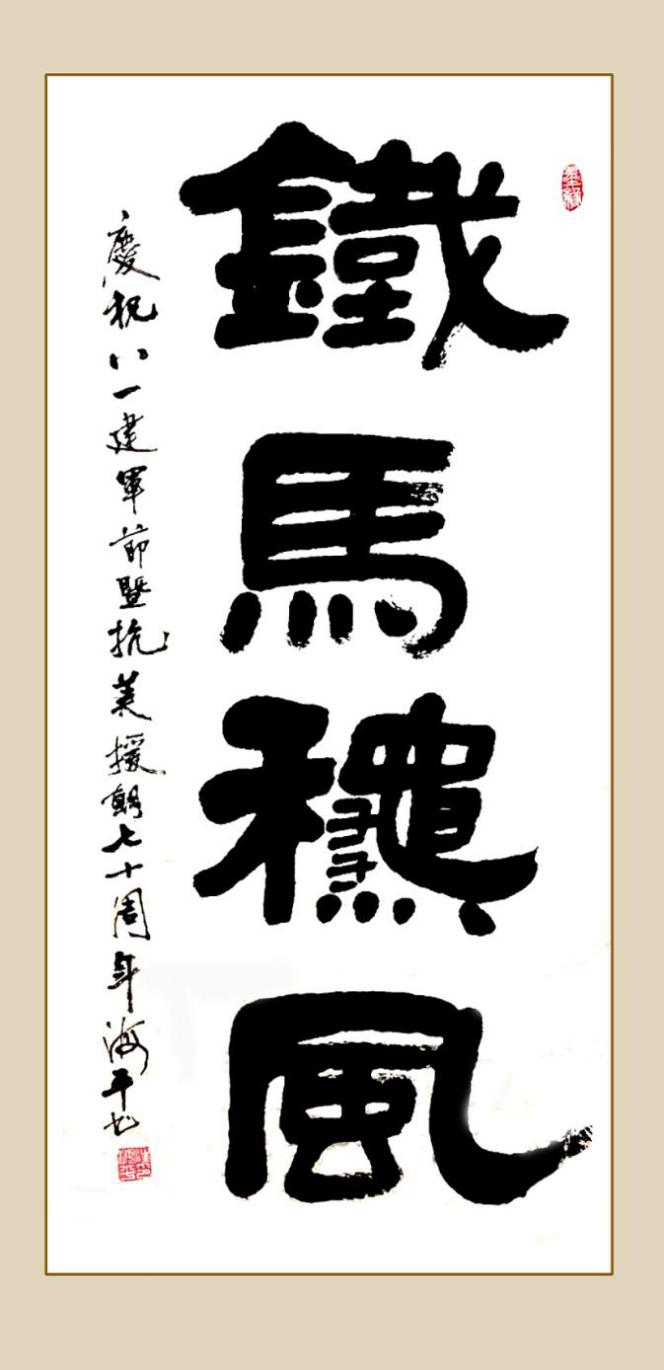 鐵馬龝風
慶祝八一建軍節暨抗美援朝七十周年海平书